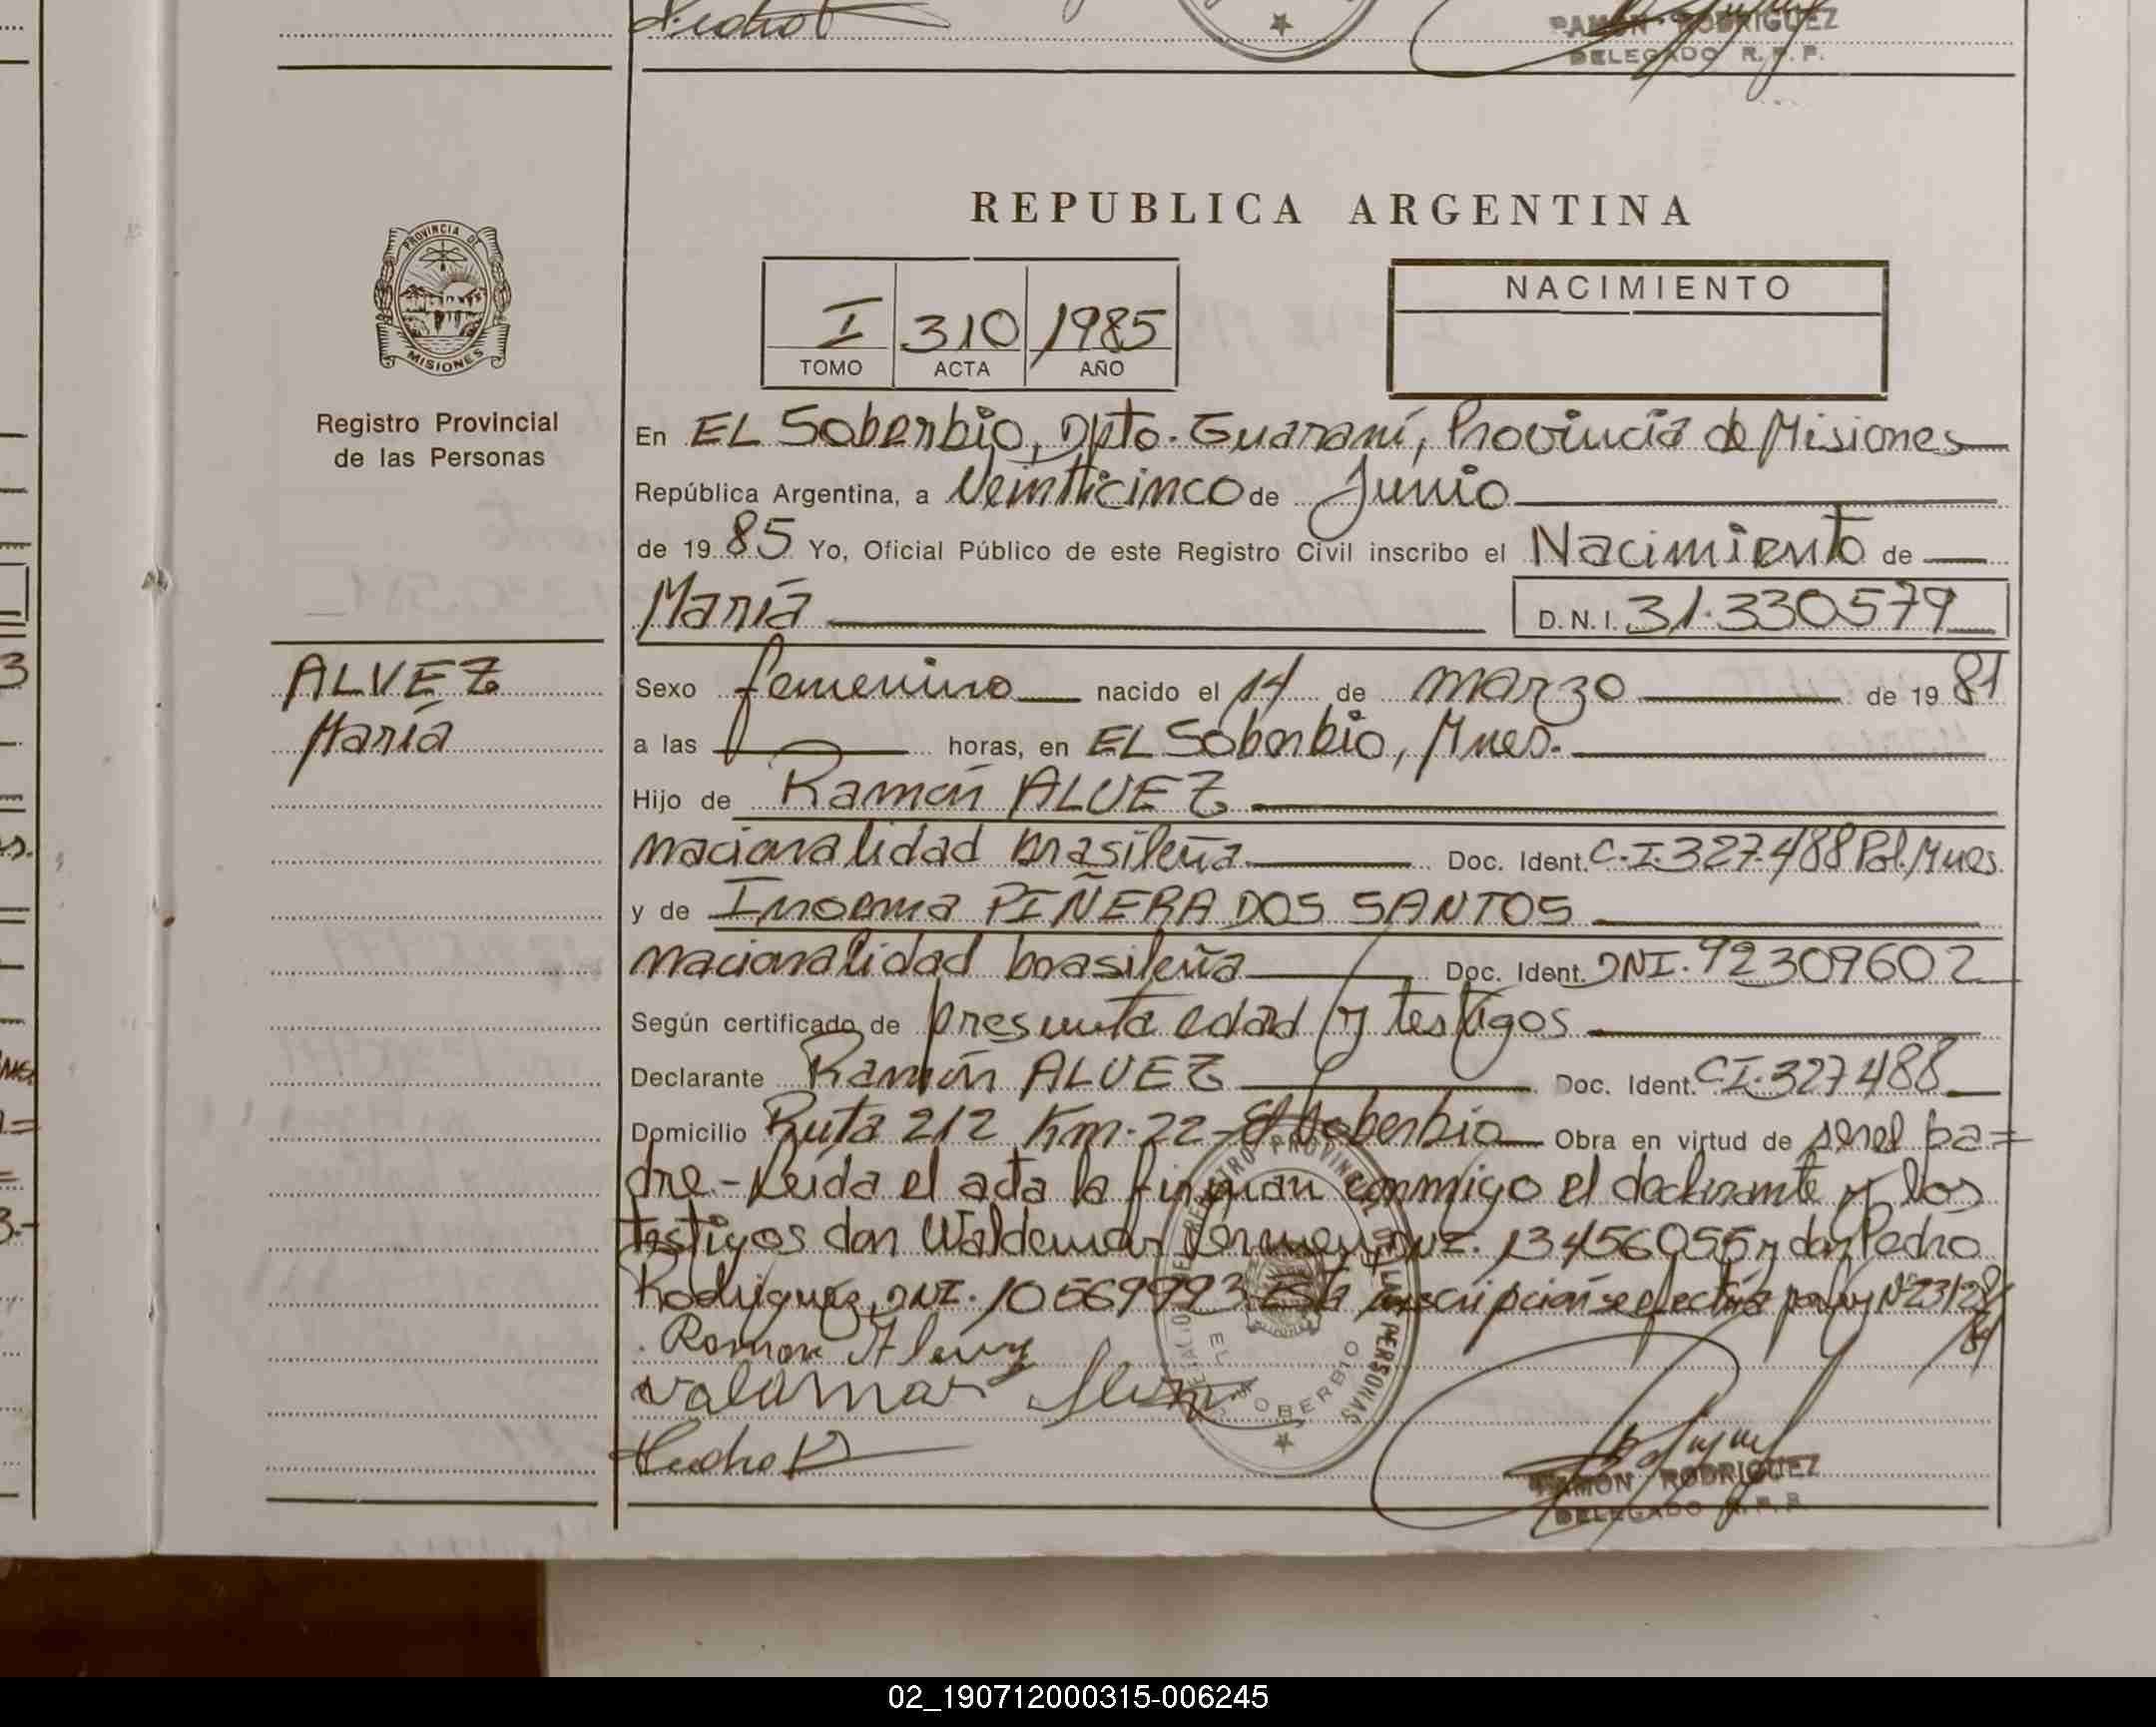 Pedro
RAMON RODRIGUEZ
DELEGADO R.P.P.
REPUBLICA ARGENTINA
PROVINCIA DE
MISIONES
Registro Provincial
de las Personas
I 310 1985
TOMO ACTA AÑO
NACIMIENTO
En EL Soberbio, Dpto. Guaraní, Provincia de Misiones
República Argentina, a Veinticinco de Junio
de 1985 Yo, Oficial Público de este Registro Civil inscribo el Nacimiento de
María D.N.I. 31.330579
ALVEZ
María
Sexo femenino nacido el 14 de marzo de 1981
a las horas, en EL Soberbio, Mnes.
Hijo de Ramón ALVEZ
nacionalidad brasileña Doc. Ident. C.I. 327.488 Pol. Mnes.
y de Inoema PIÑERA DOS SANTOS
nacionalidad brasileña Doc. Ident. DNI. 92309602
Según certificado de presunta edad y testigos
Declarante Ramón ALVEZ Doc. Ident. CI. 327488
Domicilio Ruta 212 Km. 22 - El Soberbio Obra en virtud de ser el pa=
dre.- Leída el acta la firman conmigo el declarante y los
testigos don Waldemar DNI. 13456055 y don Pedro
Rodriguez DNI. 10569993 Esta inscripción se efectúa por ley Nº 23128/
84
Ramon
Valdmar
Pedro R
REGISTRO PROVINCIAL DE LAS PERSONAS
EL SOBERBIO
RAMON RODRIGUEZ
DELEGADO R.P.P.
02_190712000315-006245